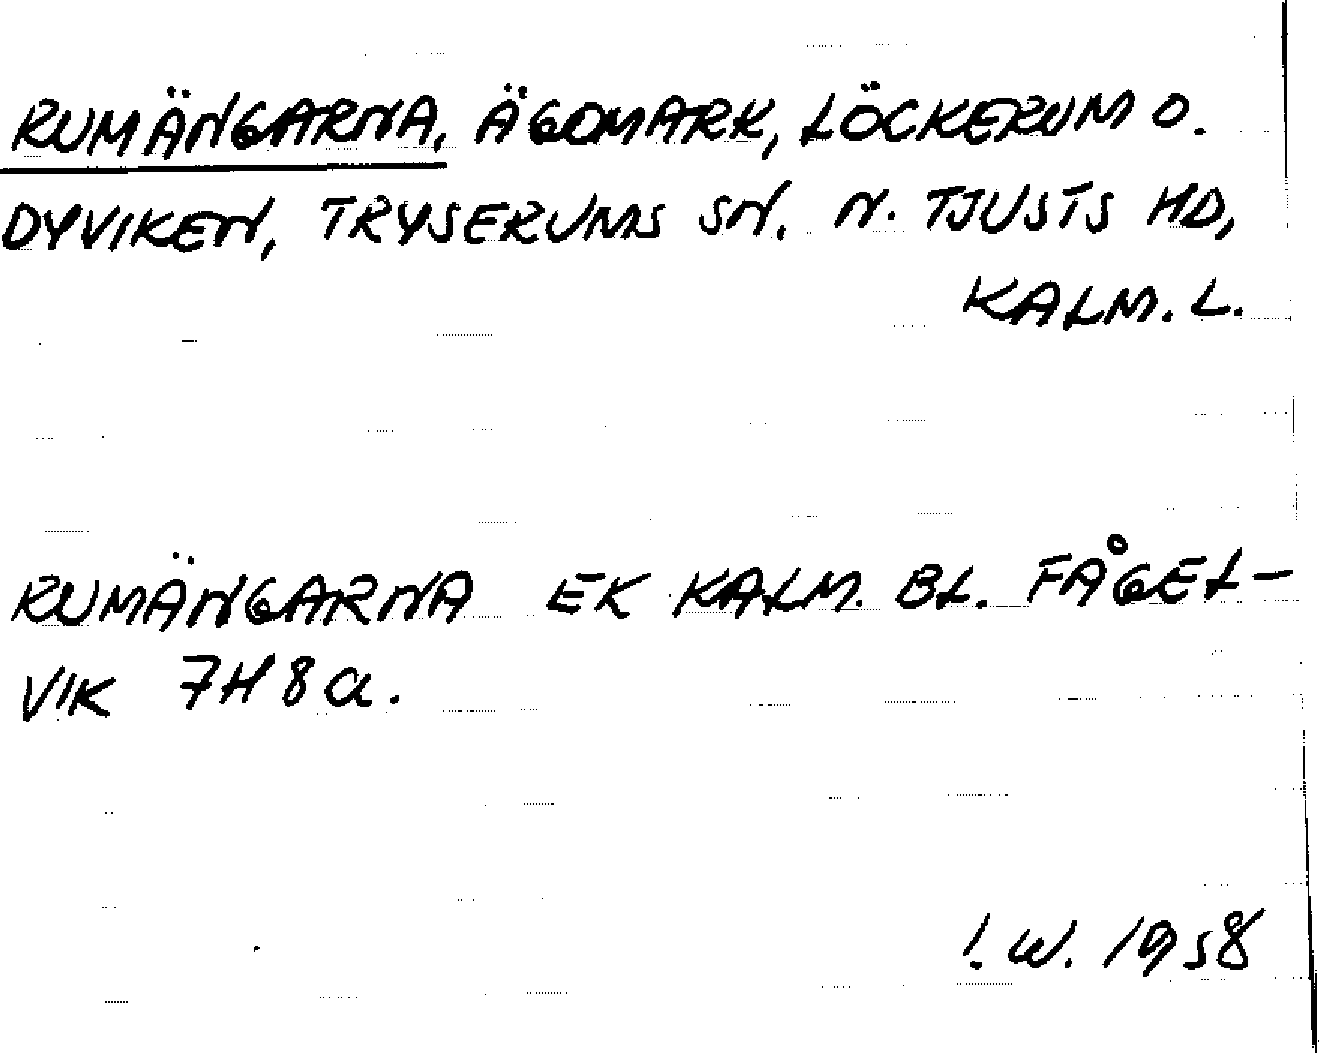 RUMÄNGARNA, ÄGOMARK, LÖCKERUM O.
DYVIKEN, TRYSERUMS SN. N. TJUSTS HD,
KALM. L.
RUMÄNGARNA EK KALM. BL. FÅGEL-
VIK 7H8a.
I. W. 1958